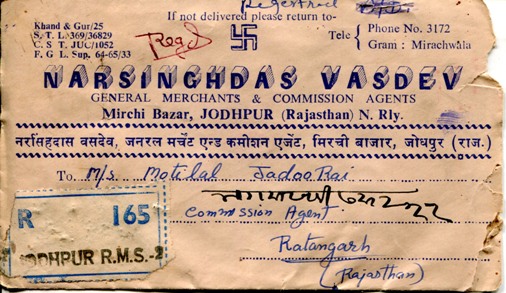 Registered
If not delivered please return to-
Khand & Gur/25
S. T. L./369/36829
C. S T. JUC/1052
F. G L. Sup. 64-65/33
Regd
Tele { Phone No. 3172
Gram : Mirachwala
NARSINGHDAS VASDEV
GENERAL MERCHANTS & COMMISSION AGENTS
Mirchi Bazar, JODHPUR (Rajasthan) N. Rly.
नरसिंहदास वसदेव, जनरल मर्चेंट एन्ड कमीशन एजेंट, मिरची बाजार, जोधपुर (राज.)
To M/s. Motilal Jadoo Rai
Commission Agent
Ratangarh
(Rajasthan)
R 165
JODHPUR R.M.S.-2